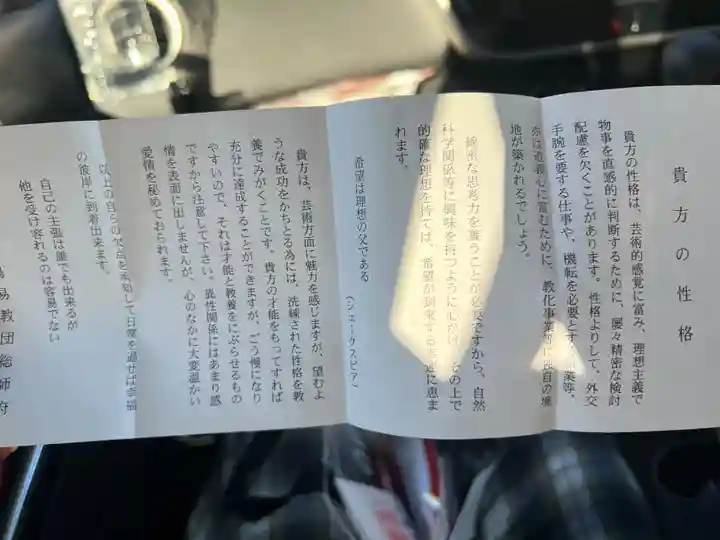 貴方の性格
貴方の性格は、芸術的感覚に富み、理想主義で
物事を直感的に判断するために、屡々精密な検討
配慮を欠くことがあります。性格よりして、外交
手腕を要する仕事や、機転を必要とする
亦は道義心に富むために、教化事業等に
地が築かれるでしょう。
綿密な思考力を養うことが必要ですから、自然
科学関係等に興味を持つように心がけ、その上で
的確な理想を育てば、希望が到来する
れます。
希望は理想の父である
(シェークスピア)
貴方は、芸術方面に魅力を感じますが、望むよ
うな成功をかちとる為には、洗練された性格を教
養でみがくことです。貴方の才能をもってすれば
充分に達成することができますが、ごう慢になり
やすいので、それは才能と教養をにぶらせるもの
ですから注意して下さい。異性関係にはあまり感
情を表面に出しませんが、心のなかに大変温かい
愛情を秘めておられます。
以上の自らの欠点を承知して日常を過せば幸福
の彼岸に到着出来ます。
自己の主張は誰でも出来るが
他を受け容れるのは容易でない
易教団総師府